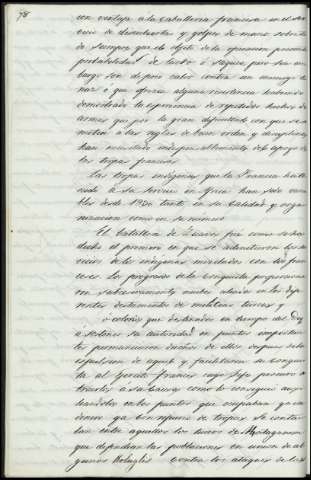 78
con ventaja a la Caballeria francesa en el ser-
vicio de descubiertas y golpes de mano sobre to-
do siempre que el objeto de la operacion presente
probabilidad de botin ó saqueo, pero sin em-
bargo son de poco valor contra un enemigo te-
naz ó que ofrezca alguna resistencia habiendo
demostrado la experiencia de repetidos hechos de
armas que por la gran dificultad con que se so-
meten á las reglas de buen orden y disciplina
han necesitado indispensablemente del apoyo de
las tropas francesas
Las tropas indigenas que la Francia ha te-
nido a su servicio en Africa han sido varia-
bles desde 1830 tanto en su calidad y orga-
nizacion como en su numero
El Batallon de Zuavos fué como se ha
dicho el primero en que se admitieron los ser-
vicios de los indigenas mezclados con los fran-
ceses Los progresos de la conquista proporciona-
ron sucesivamente nuevos aliados en los dife-
rentes destacamentos de milicias turcas y
ó colorix que destinados en tiempo del Dey
a sostener su autoridad en puntos importan-
tes permanecieron dueños de ellos despues de la
espulsion de aquel y facilitaron su conquis-
ta al Ejercito frances cuyo Jefe procuró a-
traerlos á su causa como lo consiguió auxi-
liandolos en los puntos que ocupaban ya en
dinero ya con refuerzo de tropas. Se conta-
ban entre aquellos los turcos de Mostaganem
que defendian las poblaciones en union de al-
gunos Koluglis contra los ataques de los